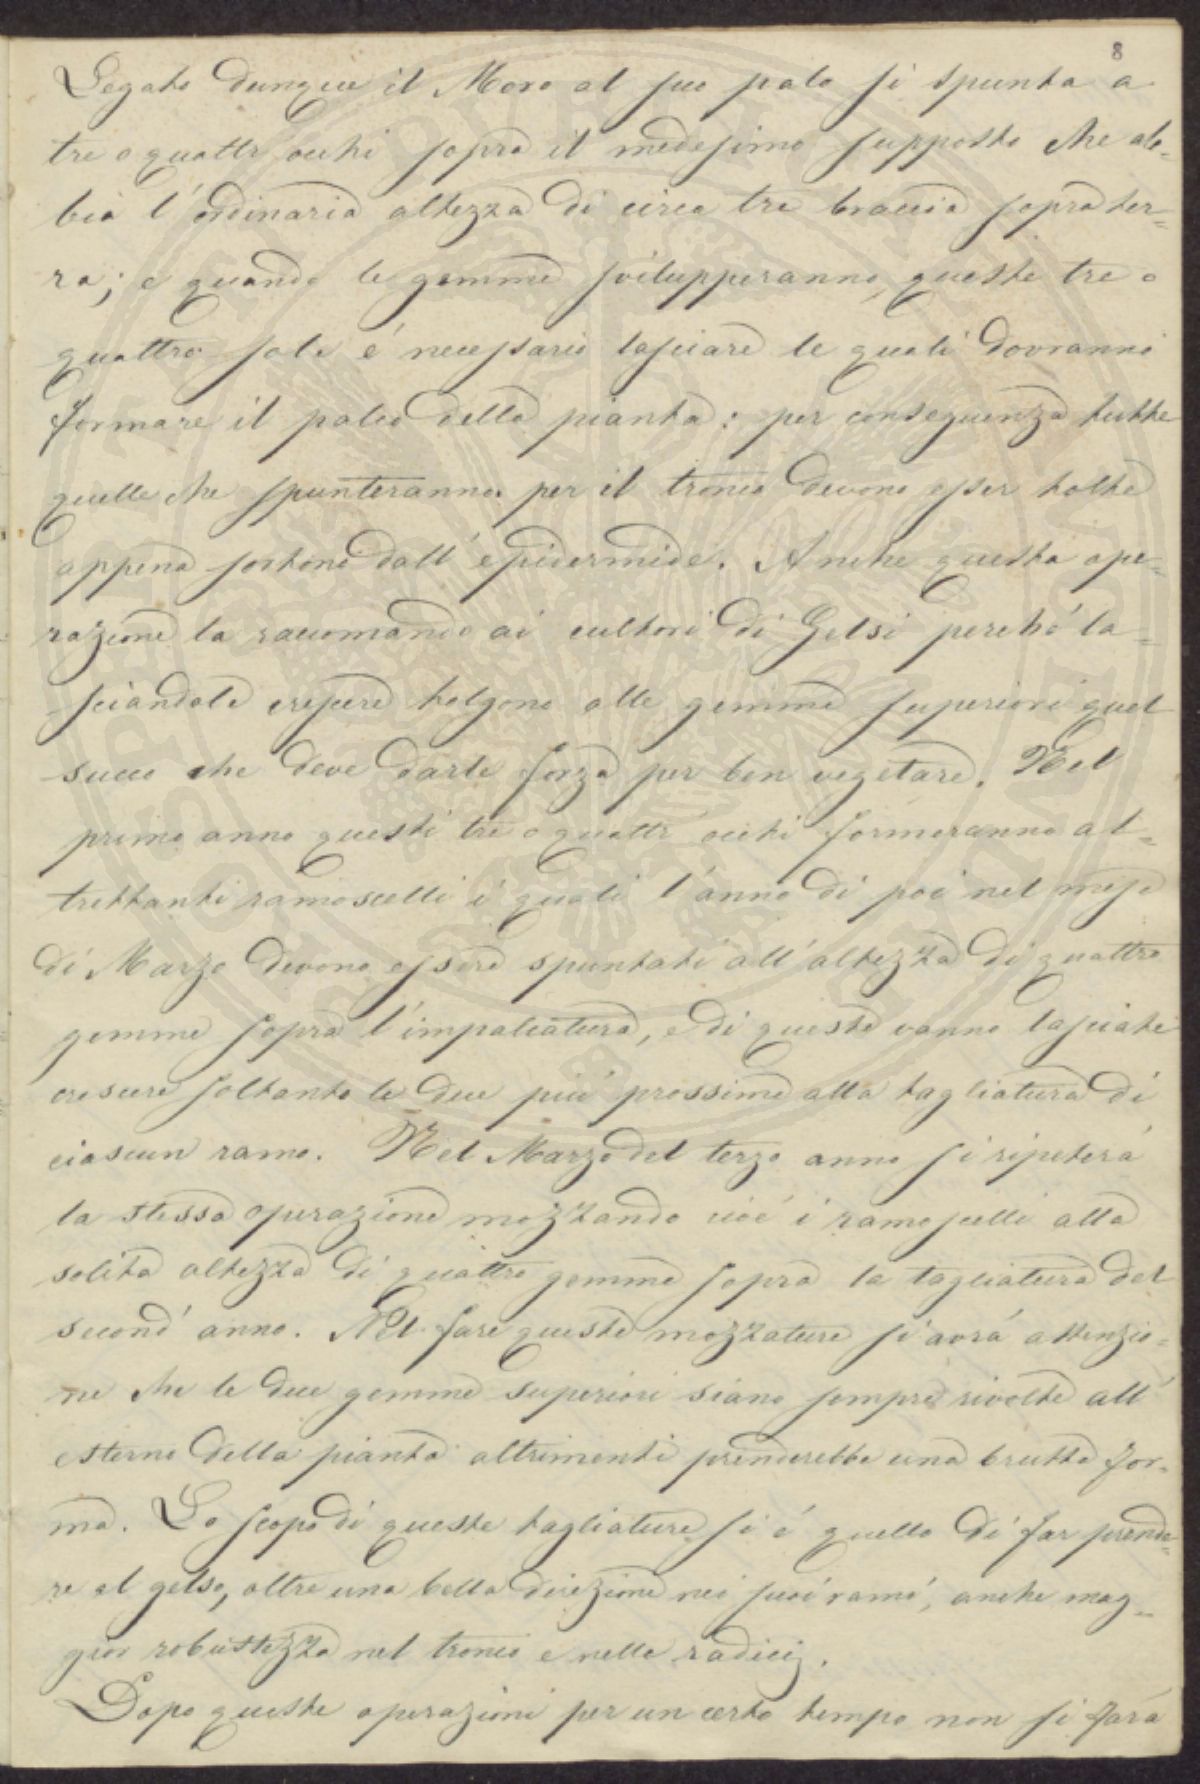 8
Legato dunque il Moro al suo palo si spunta a
tre o quattr' occhi sopra il medesimo supposto che ab=
bia l'ordinaria altezza di circa tre braccia sopra ter=
ra; e quando le gemme svilupperanno, queste tre o
quattro sole é necessario lasciare le quali dovranno
formare il palco della pianta: per conseguenza tutte
quelle che spunteranno per il tronco devono esser tolte
appena sortono dall'epidermide. Anche questa ope=
razione la raccomando ai cultori di Gelsi perché la=
sciandole crescere tolgono alle gemme superiori quel
succo che deve darle forza per ben vegetare. Nel
primo anno questi tre o quattr' occhi formeranno al=
trettanti ramoscelli i quali l'anno di poi nel mese
di Marzo devono essere spuntati all'altezza di quattro
gemme sopra l'impalcatura, e di queste vanno lasciate
crescere soltanto le due piú prossime alla tagliatura di
ciascun ramo. Nel Marzo del terzo anno si ripeterá
la stessa operazione mozzando cioé i ramoscelli alla
solita altezza di quattro gemme sopra la tagliatura del
second' anno. Nel fare queste mozzature si avrá attenzio=
ne che le due gemme superiori siano sempre rivolte all'
esterno della pianta altrimenti prenderebbe una brutta for=
ma. Lo scopo di queste tagliature si é quello di far prende=
re al gelso, oltre una bella direzione nei suoi rami, anche mag=
gior robustezza nel tronco e nelle radici.
Dopo queste operazioni per un certo tempo non si fará